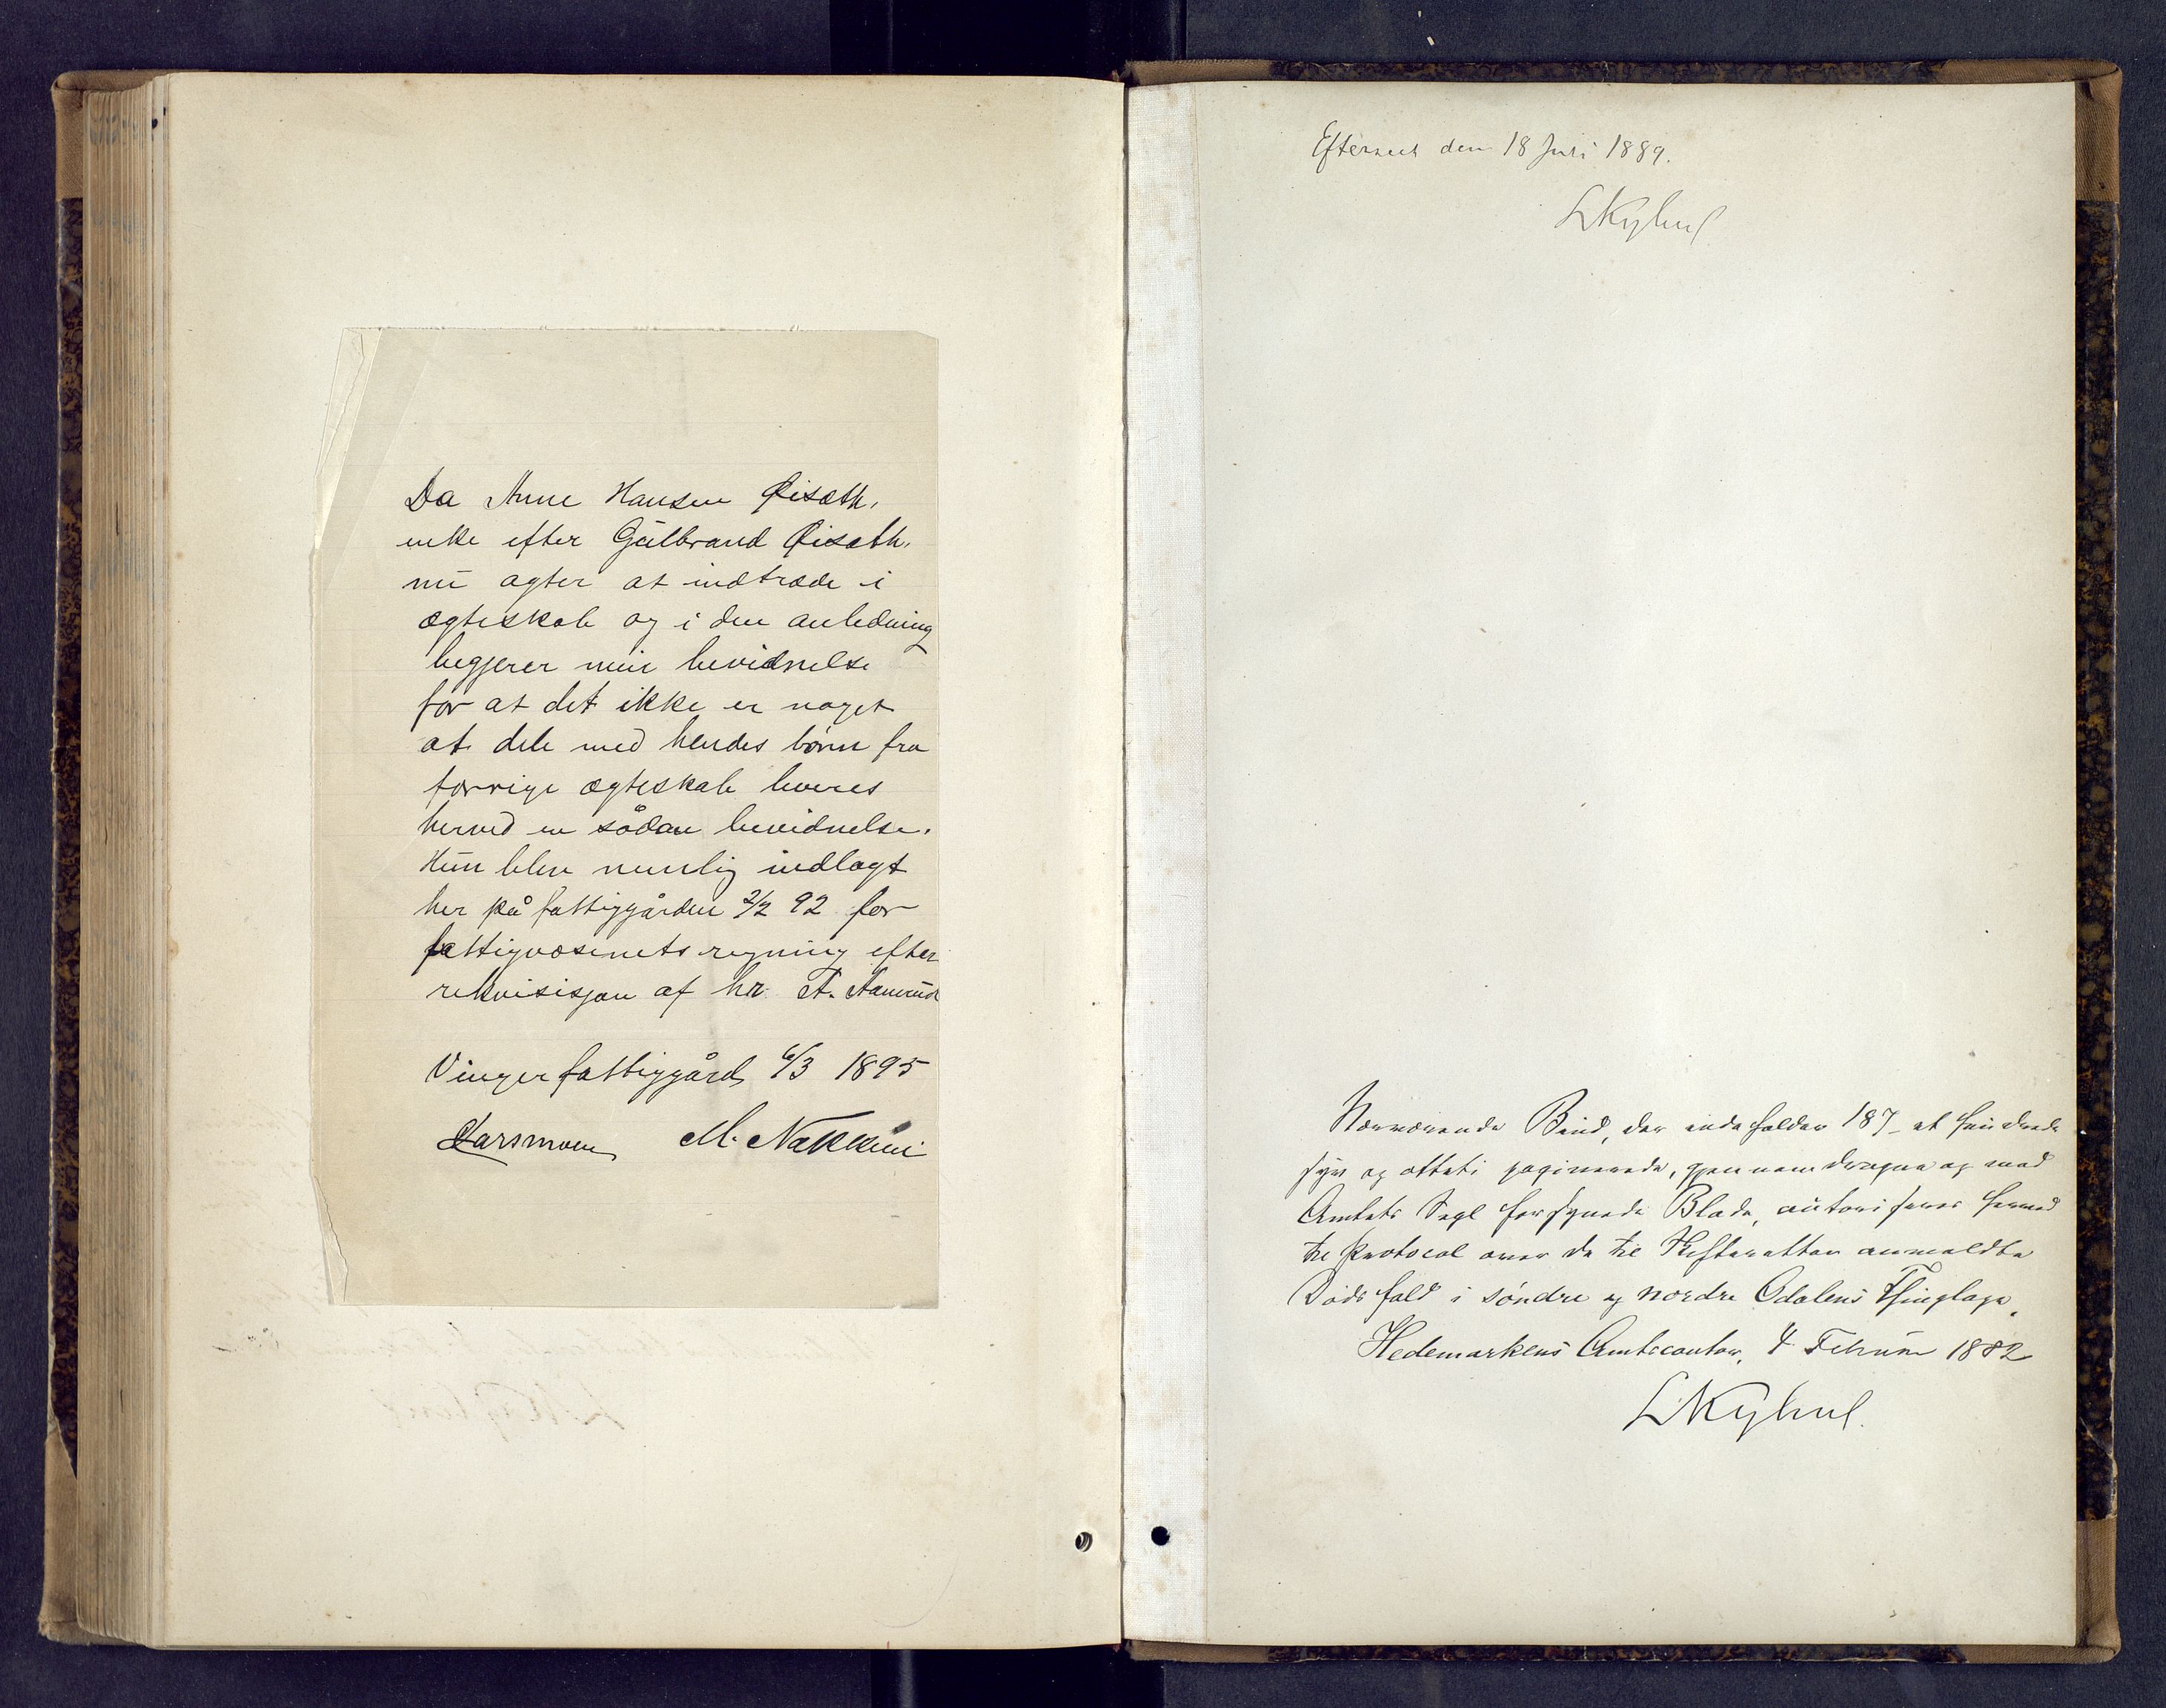 Da Anne Hansen Øisæth,
enke efter Gulbrand Øisæth,
nu agter at indtræde i
ægteskab og i den anledning
begjerer min bevidnelse
for at det ikke er noget
at dele med hendes børn fra
forrige ægteskab leveres
herved en sådan bevidnelse.
Hun blev nemlig indlagt
her på fattiggården 2/2 92 for
fattigvæsenets regning efter
rekvisisjon af hr. A. Aamrud
Vinger fattiggård, 6/3 1895
Larsmoen M. Nakkim
Efterseet den 18 Juli 1889.
LKyhul
Nærværende Bind, der indeholder 187 et hundrede
syv og otteti paginerede, gjennemdragne og med
Amtets Segl forsynede Blade, autoriseres herved
til Protocol over de til Skifteretten anmeldte
Dødsfald i søndre og nordre Odalens Thinglage.
Hedemarkens Amtscontor, 4 Februar 1882
LKyhul.